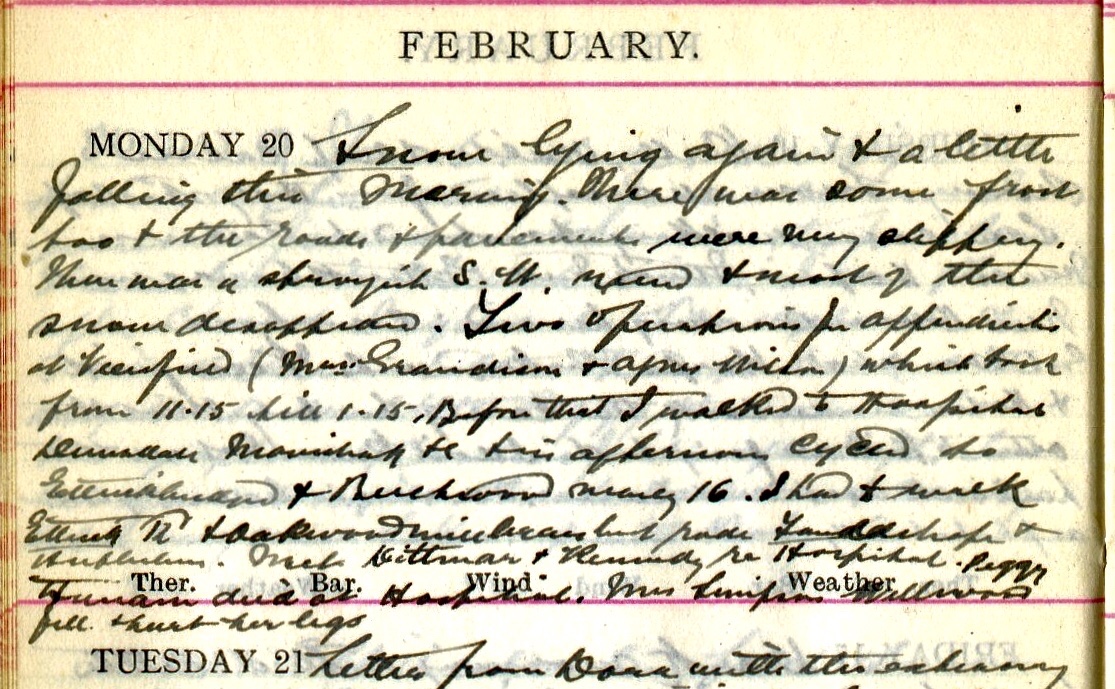 FEBRUARY.
MONDAY 20 Snow lying again & a little
falling this morning. There was some frost
too & the roads & pavements were very slippery.
There was a strongish S.W. wind & most of the
snow disappeared. Two operations for appendicitis
at Viewfield (Mrs Grandison & Agnes Wilson) which took
from 11.15 till 1.15. Before that I walked to Hospital
& this afternoon cycled to
& nearly 16. I had to walk
Ettrick & Oakwood but rode &
. Met Dittmar & Kennedy re Hospital. Peggy
Ther. Bar. Wind Weather
died at Hospital. Mrs Simpson Wellwood
fell & hurt her legs
TUESDAY 21 Letter from Dora with the